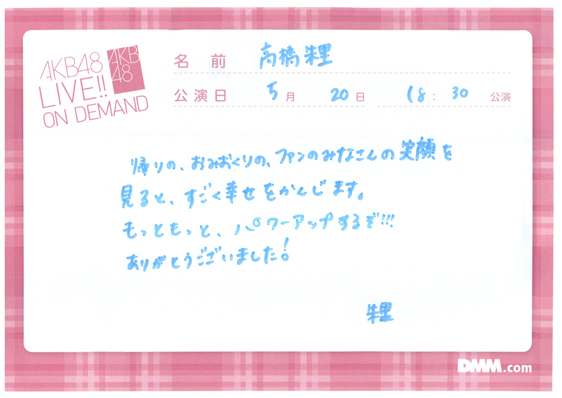 AKB48
LIVE!!
ON DEMAND
AKB
48
名 前 高橋朱里
公演日 5月 20日 18:30 公演
帰りの、おみおくりの、ファンのみなさんの笑顔を
見ると、すごく幸せをかんじます。
もっともっと、パワーアップするぞ!!!
ありがとうございました!
朱里
DMM.com